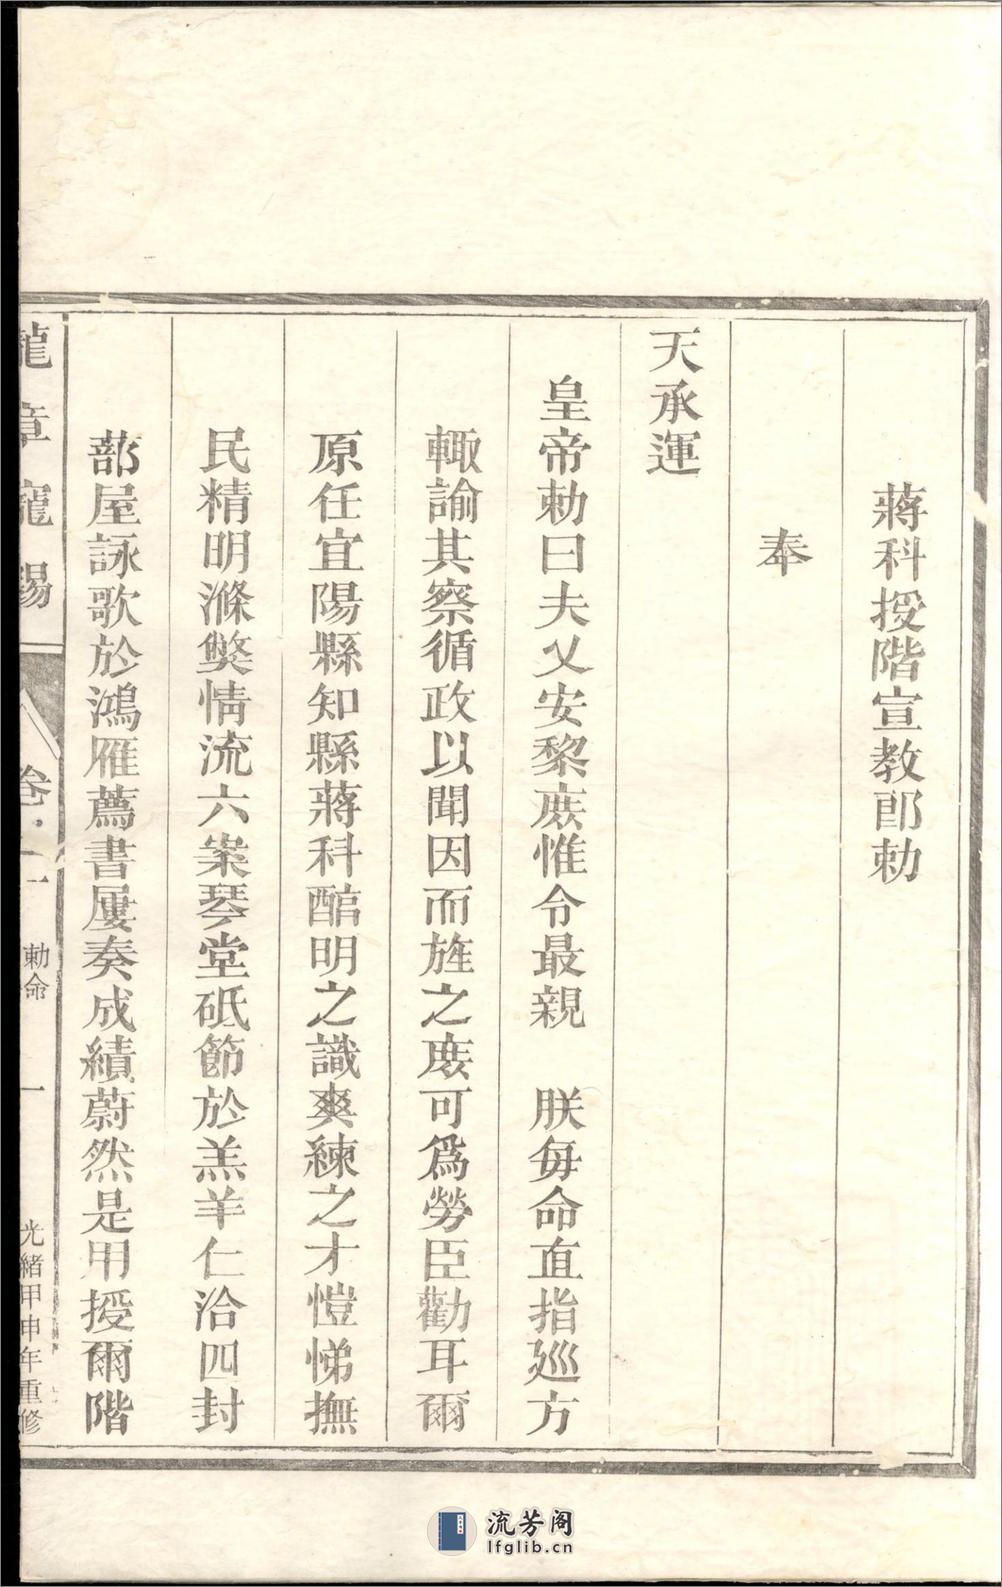 蔣科授階宣教郎勅
奉
天承運
皇帝勅曰夫乂安黎庶惟令最親　朕每命直指廵方
輙諭其察循政以聞因而旌之庶可爲勞臣勸耳爾
原任宜陽縣知縣蔣科醅明之識爽練之才愷悌撫
民精明滌獘情流六案琴堂砥節於羔羊仁洽四封
蔀屋詠歌於鴻雁薦書屢奏成績蔚然是用授爾階
龍章寵錫
卷一
勅命
一
光緒甲申年重修
流芳阁
lfglib.cn